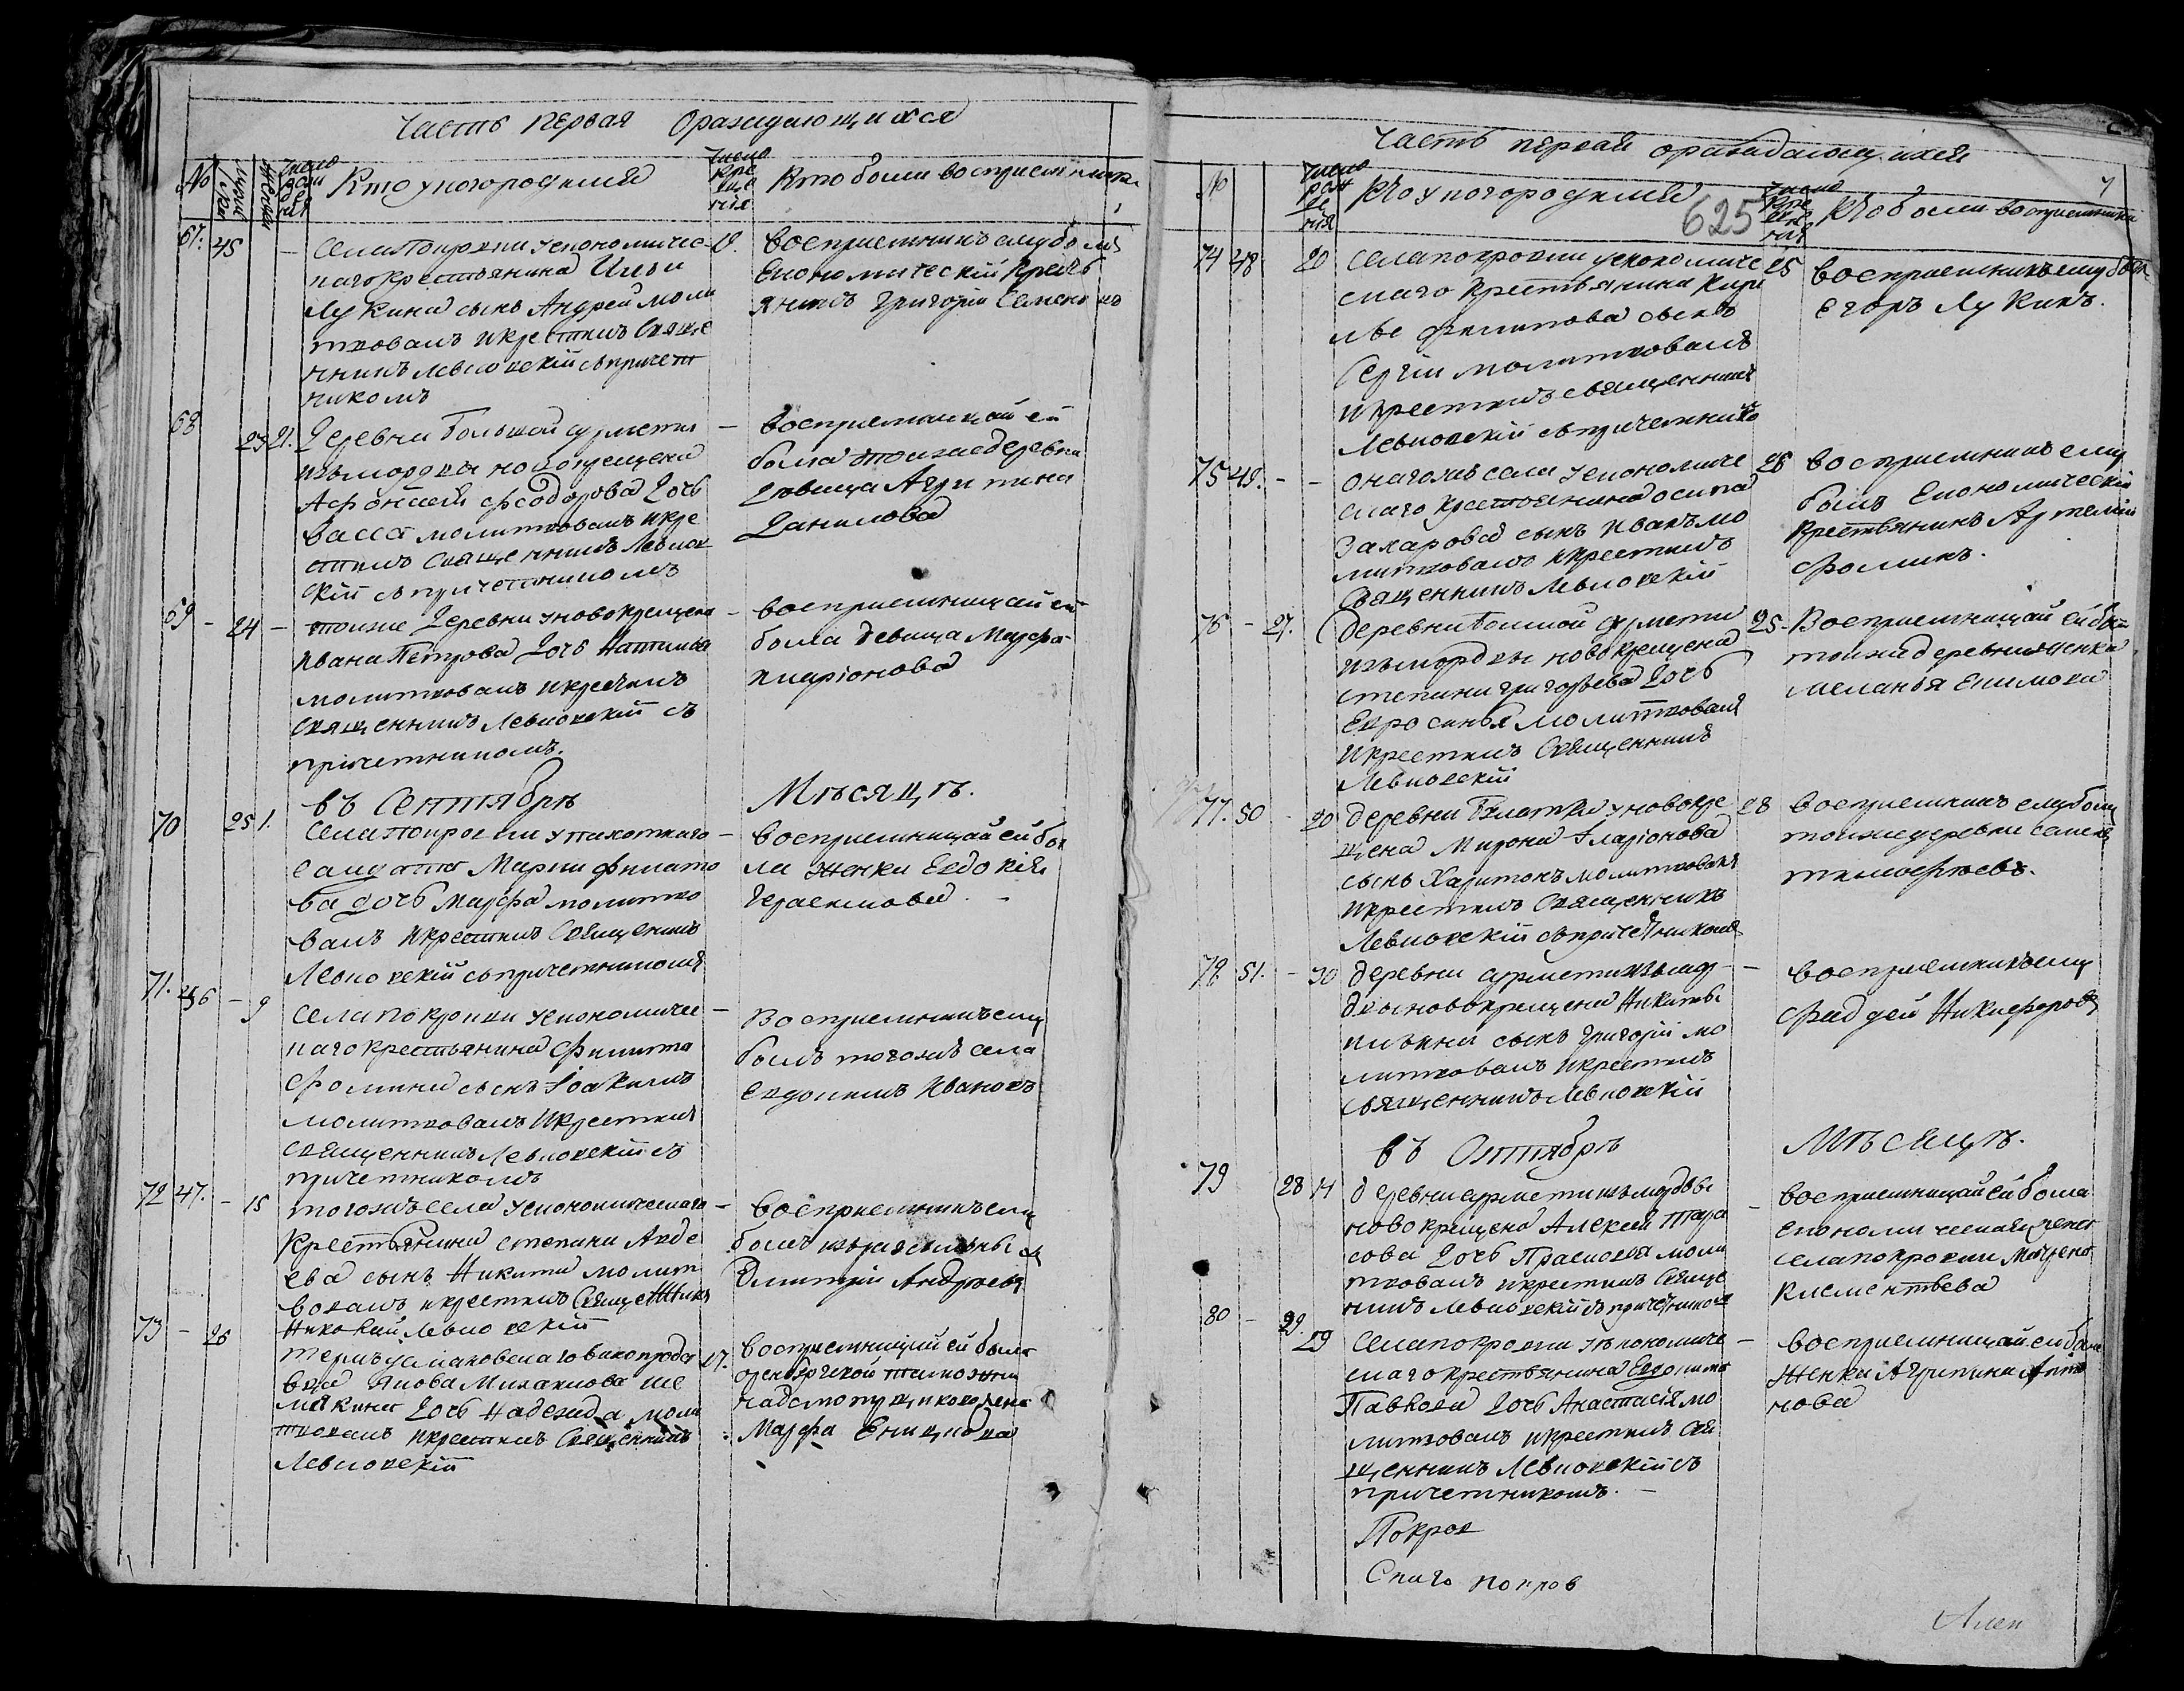 Часть первая ораждающихся
№
Число рож де нiя
Кто у кого родился
Число кре ще нiя
Кто были восприемники
67. 45 –
Села Покровки у економичес
каго крестьянина Ильи
Лукина сынъ Андрей моли
твовалъ и крестилъ Свяще
нникъ Левковскiй съ причет
никомъ
восприемникъ ему былъ
Економическiй крестъ
янинъ Григорiй Семеновъ
68 23 21.
Деревни Большой Сурмети
изъ мордвы новокрещена
Афонасей Феодорова дочь
Васса молитвовалъ и кре
стилъ Священникъ Левков
скiй съ причетникомъ
– восприемницей ей
была тоиже деревни
девица Агрипина
Данилова
69 – 24 –
тоиже Деревни у новокрещена
Ивана Петрова дочь Наталья
молитвовалъ и крестилъ
Священникъ Левковскiй съ
причетникомъ.
– восприемницей ей
была девица Марфа
въ Сентябрѣ Мѣсяцѣ.
70 25 1.
Села Покровки у
салдата Марки Филато
ва дочь Марфа молитво
валъ и крестилъ Священникъ
Левковскiй съ причетникомъ
– восприемницей ей бы
ла женка Евдокiя
Герасимова.
71. 46 – 9
Села Покровки у економичес
каго крестьянина Филипа
Фомина сынъ Iоакимъ
молитвовалъ и крестилъ
священникъ Левковскiй съ
причетникомъ
– Восприемникъ ему
былъ тогожъ села
Евдокимъ Ивановъ
72 47. – 15
тогожъ села у економическаго
крестьянина Степана Авде
ева сынъ Никита молит
вовалъ и крестилъ Священникъ
Николай Левковскiй
– восприемникъ ему
былъ
Дмитрiй Андреевъ
73 – 26
вца Якова Михаилова Ше
мякина дочь Надежда моли
твовалъ и крестилъ Священникъ
Левковскiй
17. восприемницей ей была
оренбургской таможни
надсмотрщикова жена
Марфа
Часть первая ораждающихся
625
7
№
Число рож де нiя
Кто у кого родился
Число кре ще нiя
Кто были восприемники
74 48 20
Села Покровки у економиче
скаго крестьянина Кири
лы Филипова сынъ
Сергiй молитвовалъ
и крестилъ священникъ
Левковскiй съ причетникомъ
25 восприемникъ ему былъ
Егоръ Лукинъ.
75 49. – –
Онагожъ села у економиче
скаго крестьянина Осипа
Захарова сынъ Иванъ мо
литвовалъ и крестилъ
Священникъ Левковскiй
26 восприемникъ ему
былъ Економическiй
крестьянинъ Артемiй
Фоминъ.
76 – 27.
Деревни Болшой Сурмети
изъ мордвы новокрещена
Степана Григорьева дочь
Евросинья молитвовалъ
и крестилъ Священникъ
Левковскiй
25. Восприемницей ей была
тоиже деревни женка
Меланья Екимова
77. 50 – 20
деревни у новокре
щена Мирона Iларiонова
сынъ Харитонъ молитвовалъ
и крестилъ Священникъ
Левковскiй съ причетникомъ
28 восприемникъ ему былъ
тоиже деревни
Тимофеевъ.
78 51. – 30
деревни Сурмети изъ мор
двы новокрещена Никиты
Ильина сынъ Григорiй мо
литвовалъ и крестилъ
священникъ Левковскiй
– восприемникъ ему
Фаддей Никифоровъ
въ Октябрѣ Мѣсяцѣ.
79 28 14
деревни Сурмети изъ мордвы
новокрещена Алексея Тара
сова дочь Прасковья моли
твовалъ и крестилъ Свяще
нникъ Левковскiй съ причетникомъ
– восприемницей ей была
економическая женка
села Покровки
Клементьева
80 – 29. 29
Села Покровки у економиче
скаго крестьянина Евдокима
Павлова дочь Анастасiя мо
литвовалъ и крестилъ Свя
щенникъ Левковскiй съ
причетникомъ. –
– восприемницей ей была
женка Агрипина Анто
нова
Покров
Скаго покров